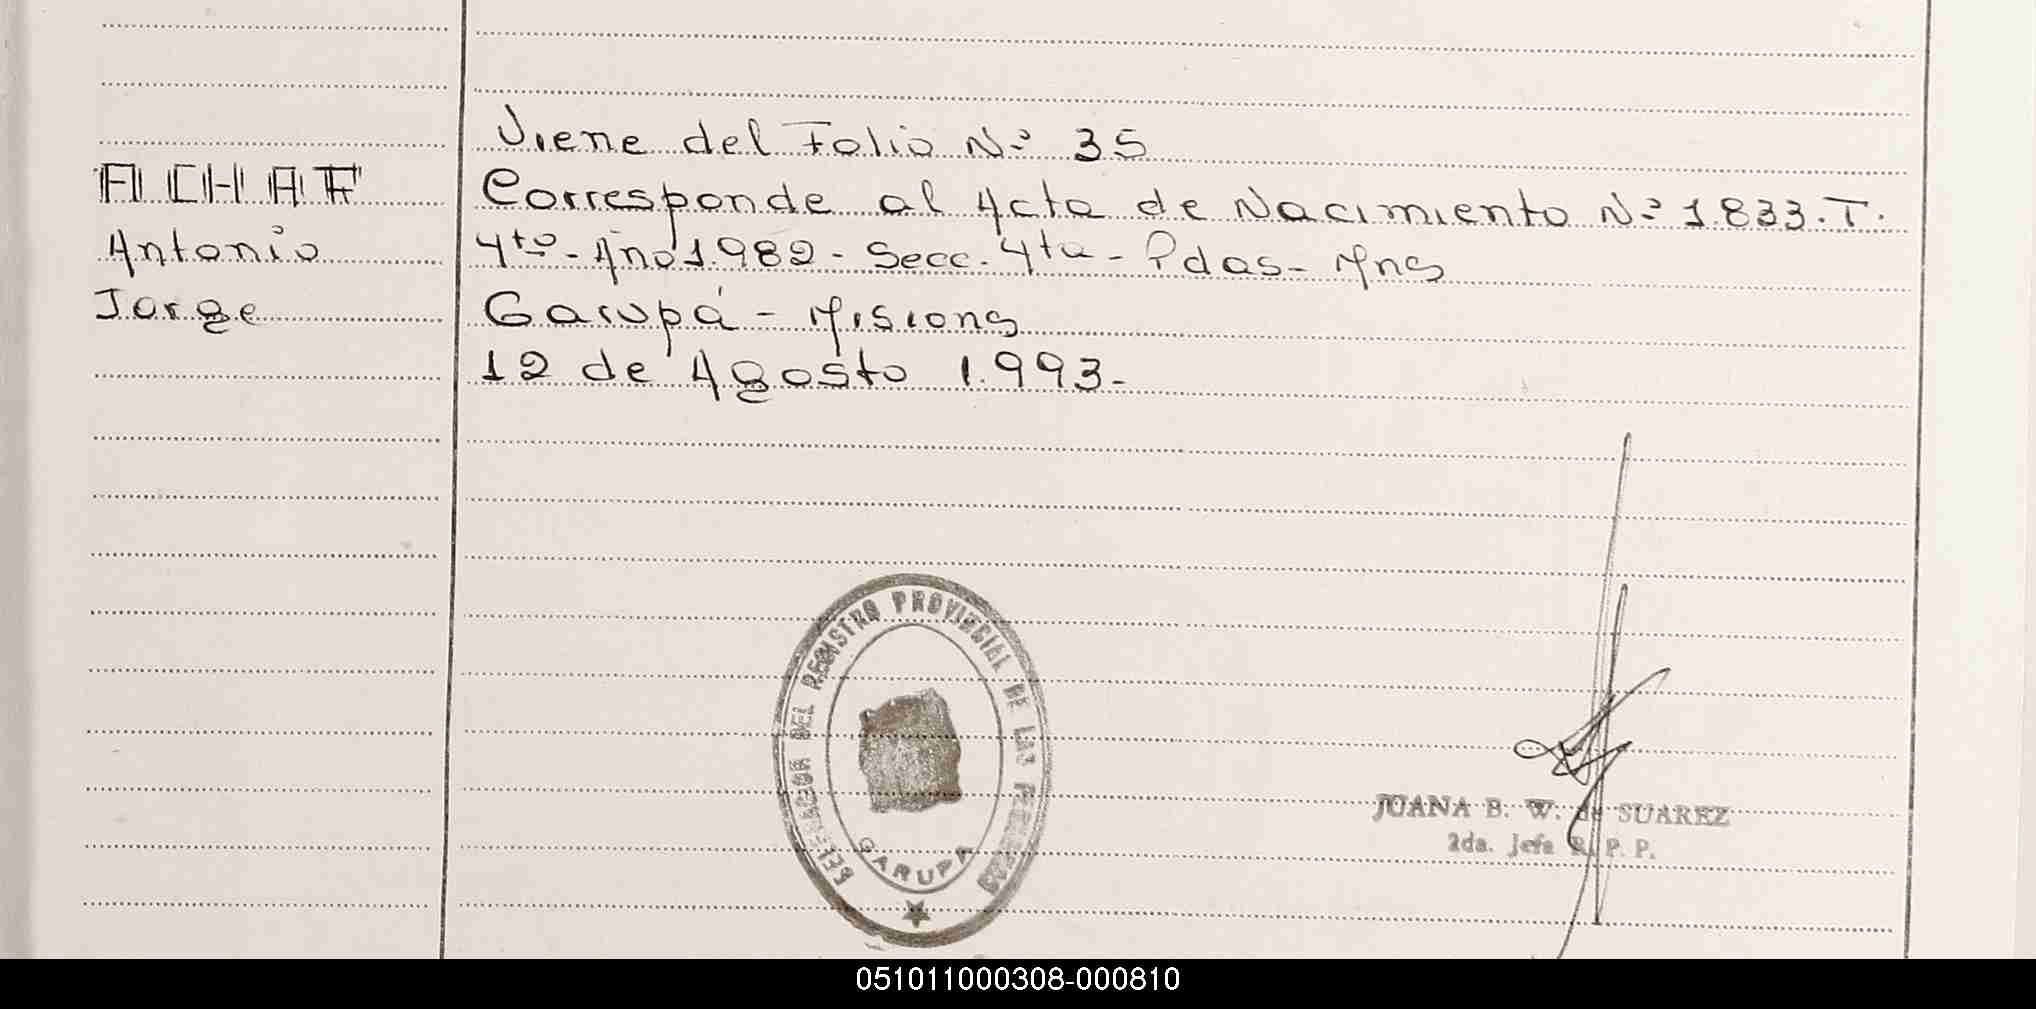 Viene del Folio Nº 35
ACHAR
Corresponde al Acta de Nacimiento Nº 1.833. T.
Antonio
4to - Año 1.982 - Secc. 4ta - Pdas - Mns
Jorge
Garupá - Misions
12 de Agosto 1.993.-
DELEGACION DEL REGISTRO PROVINCIAL DE LAS PERSONAS
GARUPA
JUANA B. W. de SUAREZ
2da. Jefa R. P. P.
051011000308-000810